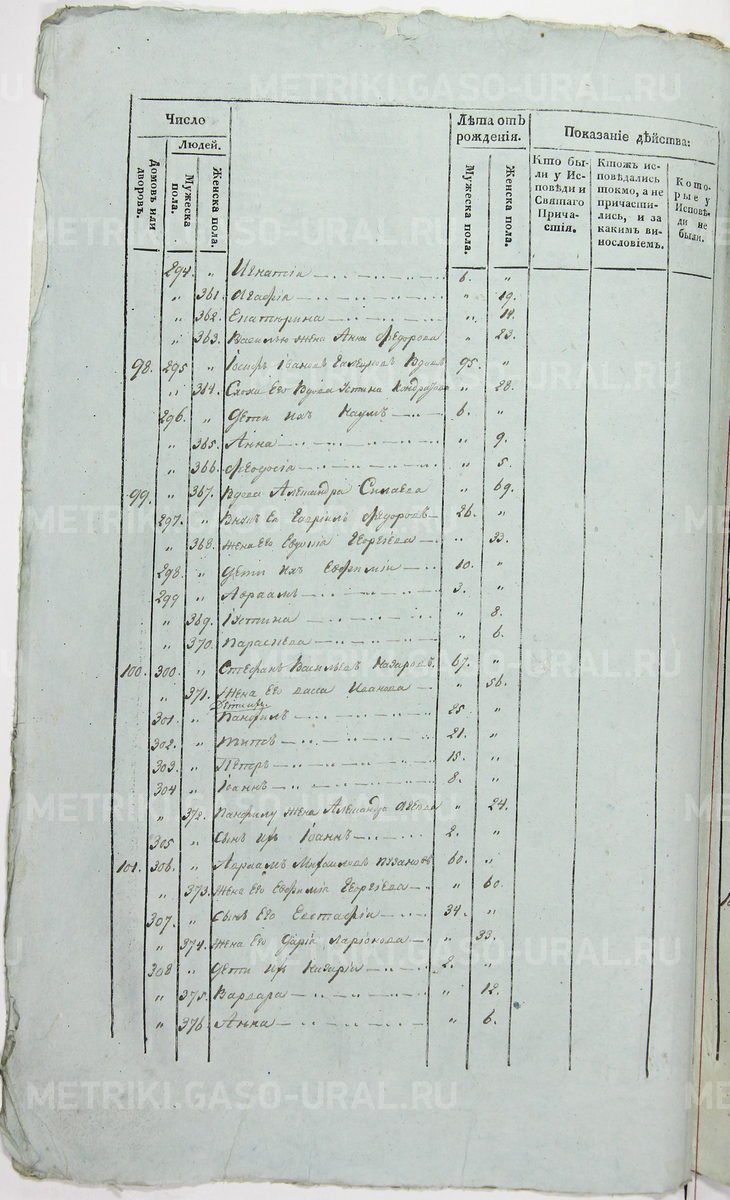 Число
Людей.
Домовъ или дворовъ.
Мужеска пола.
Женска пола.
Лѣта отъ рожденія.
Мужеска пола.
Женска пола.
Показаніе дѣйства:
Кто бы-
ли у Ис-
повѣди и
Святаго
Прича-
стія.
Ктожъ ис-
повѣдались
токмо, а не
причасти-
лись, и за
какимъ ви-
нословіемъ.
Кото-
рые у
Исповѣ-
ди не
были.
294. " Игнатій 6. "
" 361. Агафія " 19.
" 362. Екатерина "
" 363. Василью жена Анна Федорова " 23.
98. 295 " Іосифъ Ивановъ Вдовъ 95. "
" 364. Сноха Его Вдова Устина " 28.
296. " Дети ихъ Наумъ 6. "
" 365. Анна " 9.
" 366. Феодосія " 5.
99. " 367. Вдова Александра Силаева " 69.
297. " Внукъ Ея Гавриилъ Федоровъ 26. "
" 368. Жена Его Евдокія Георгіева " 33.
298. " Дети ихъ Евфимій 10. "
299 " Авраамъ 3. "
" 369. Іустина " 8.
" 370. Параскева " 6.
100. 300. " Стефанъ Васильевъ Назаровъ 67. "
" 371. Жена Его Васса Иванова " 56.
Дети ихъ
301. " Панфилъ 25 "
302. " Титъ 21. "
303. " Петръ 15. "
304 " Іоаннъ 8. "
" 372. Панфилу жена Александра " 24.
305 " Сынъ ихъ Іоаннъ 2. "
101. 306. " Михайловъ Пузановъ 60. "
" 373. Жена Его Евфимія Георгіева " 60.
307. " Сынъ Его Евстафій 34. "
" 374. Жена Его Дарія Ларіонова " 33.
308 " Дети ихъ Назарій 2. "
" 375. Варвара " 12.
" 376. Анна " 6.
METRIKI.GASO-URAL.RU